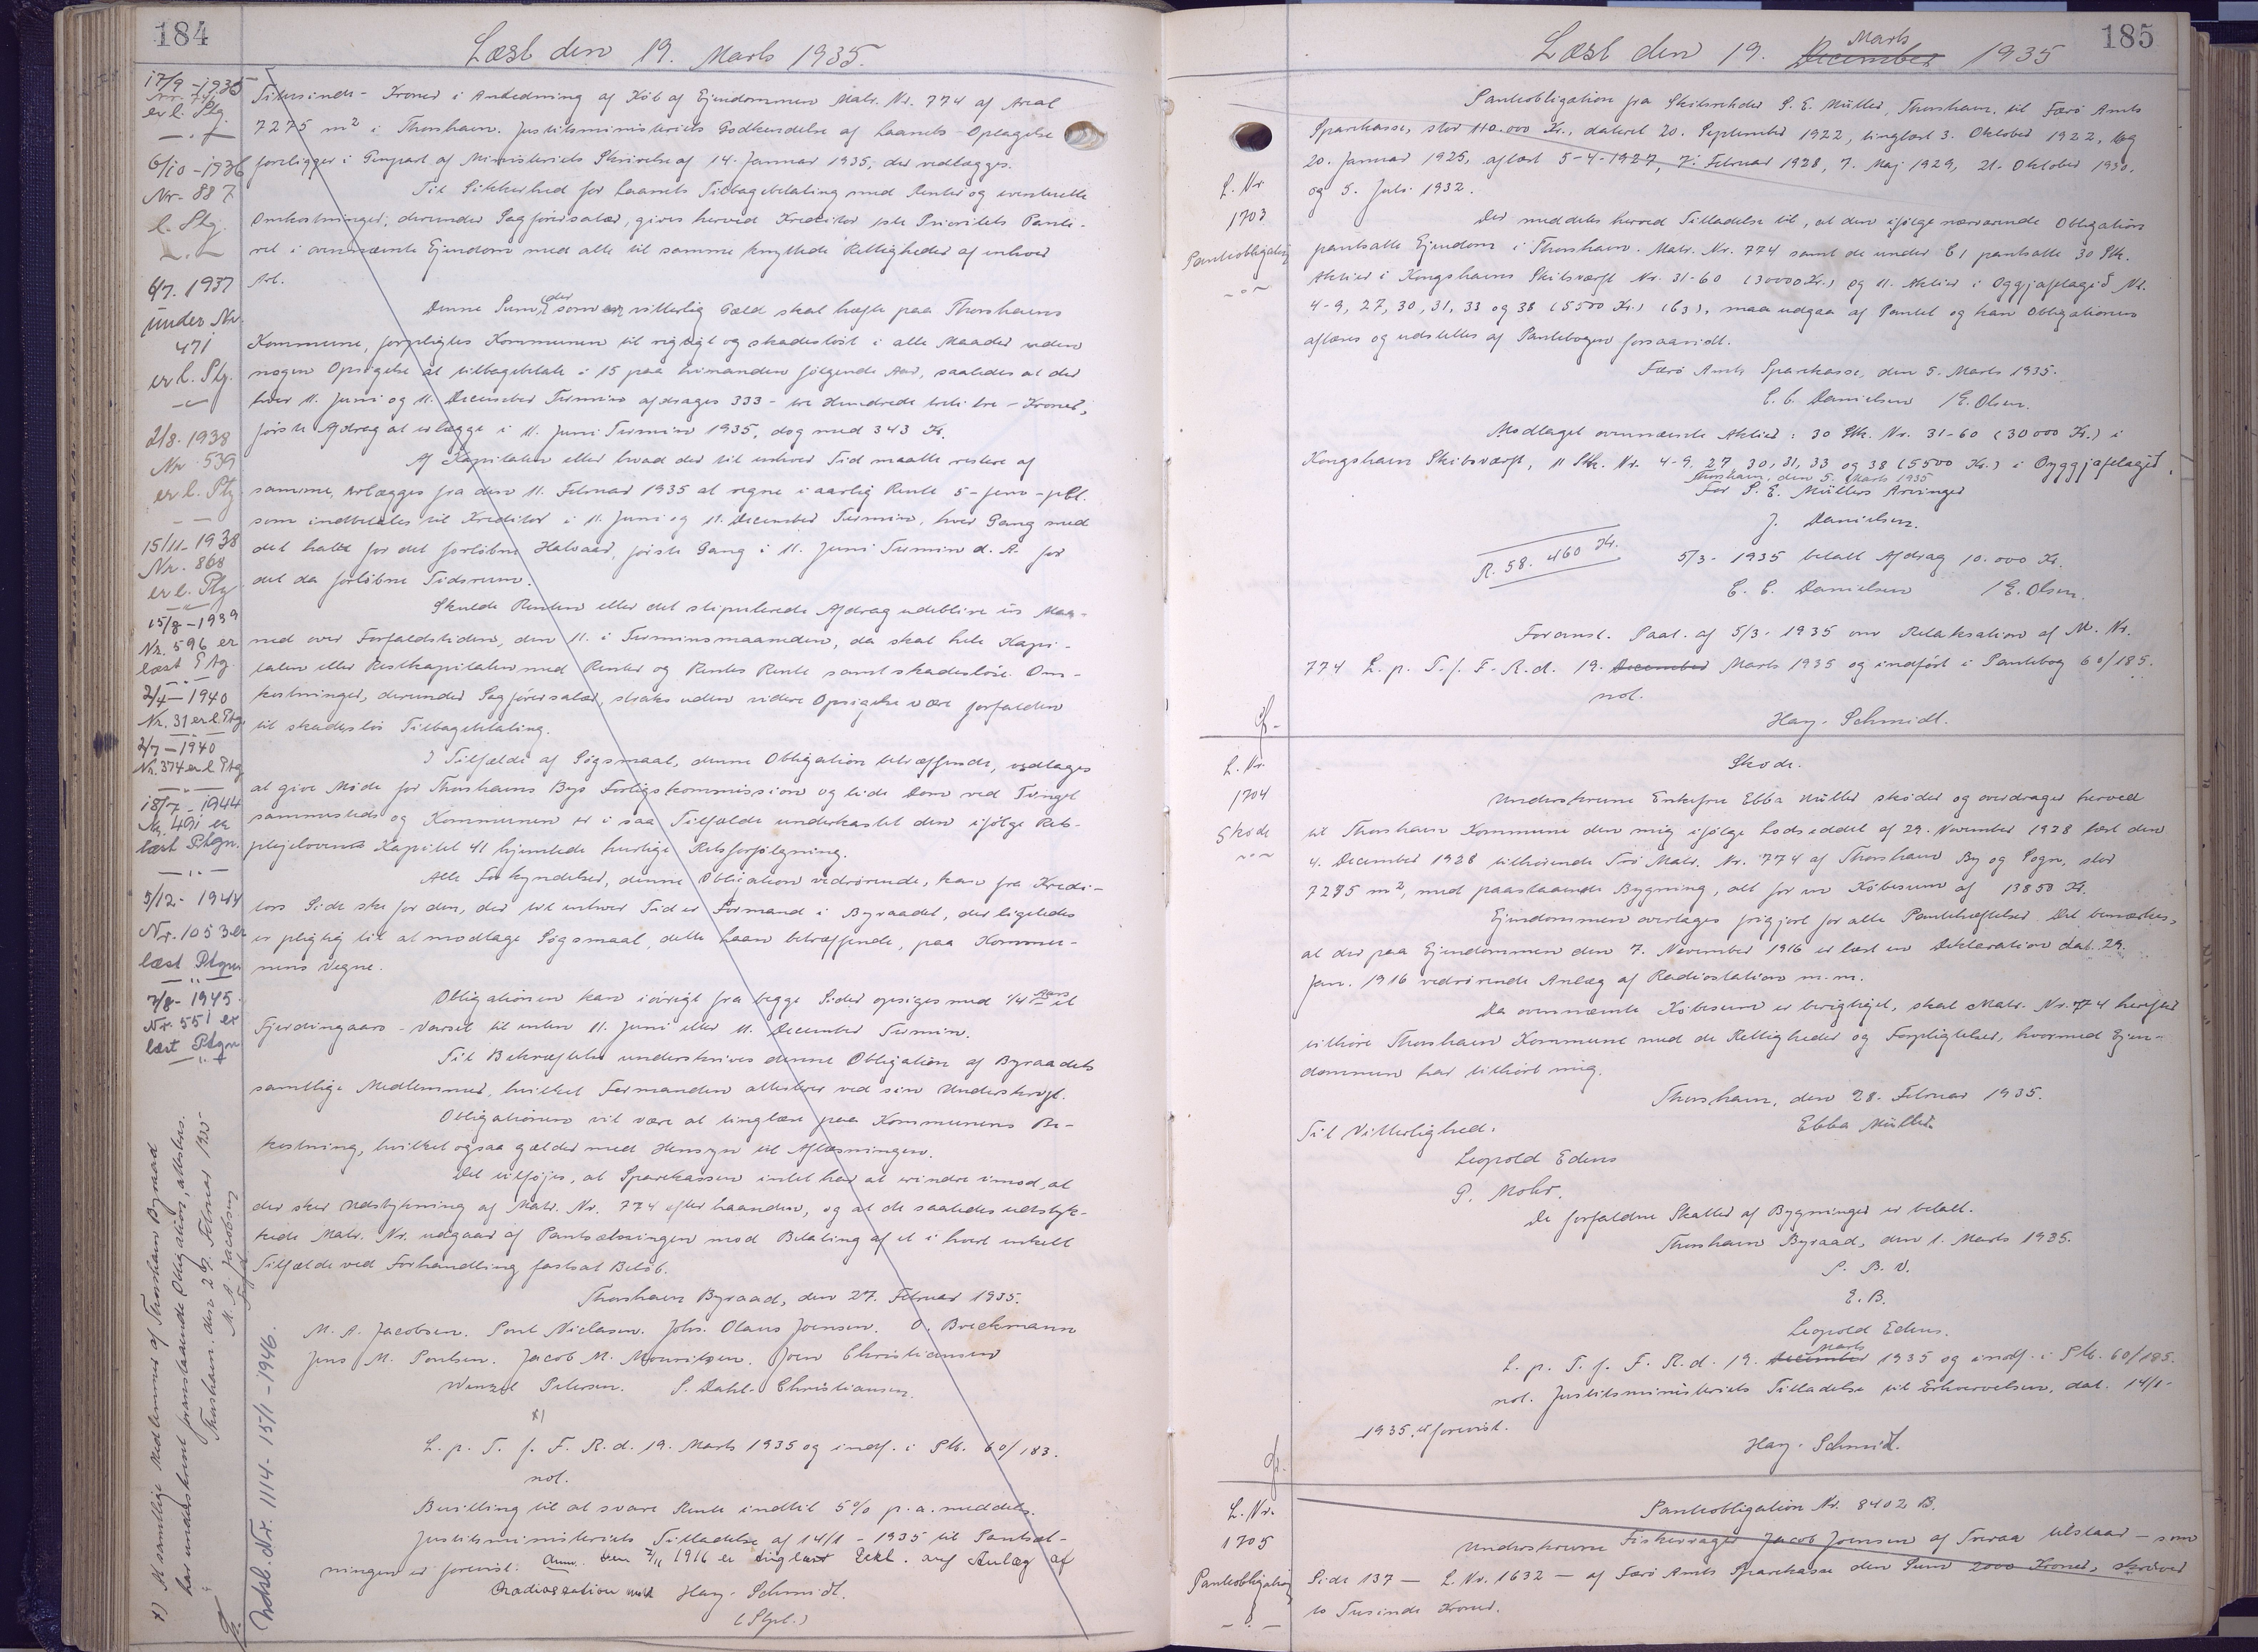 184
Læst den 19. Marts 1935.
17/9 - 1935
er l. Ptg.
6/10 - 1936
Nr. 887
l. Ptg.
6/7. 1937
under Nr.
471
er l. Ptg.
2/8. 1938
Nr. 539
er l. Ptg
15/11 - 1938
Nr. 868
er l. Ptg
15/8 - 1939
Nr. 596 er
læst Ptg
2/4 - 1940
Nr. 31 er l. Ptg.
2/7 - 1940
Nr. 374 er l Ptg
18/7 - 1944
Nr. 491 er
læst Ptgn.
5/12 - 1944
Nr. 1053 er
læst Ptgn
7/8 - 1945.
Nr. 551 er
læst Ptgn
x) At samtlige Medlemmer af Thorshavn Byraad
har underskrevet foranstaaende Obligation, attesteres.
Thorshavn, den 27. Februar 1935
M. A. Jacobsen
Notsb. Nr. 1114 - 15/1 - 1946.
Titusinde - Kroner i Anledning af Køb af Ejendommen Matr. Nr. 774 af Areal
7275 m² i Thorshavn. Justitsministeriets Godkendelse af Laanets Optagelse
foreligger i Genpart af Ministeriets Skrivelse af 14. Januar 1935, der vedlægges.
Til Sikkerhed for Laanets Tilbagebetaling med Renter og eventuelle
Omkostninger, derunder Sagførersalær, gives herved Kreditor 1ste Prioritets Pante-
ret i ovennævnte Ejendom med alle til samme knyttede Rettigheder af enhver
Art.
Denne Sum, der som en vitterlig Gæld skal hæfte paa Thorshavns
Kommune, forpligtes Kommunen til rigtigt og skadesløst i alle Maader uden
nogen Opsigelse at tilbagebetale i 15 paa hinanden følgende Aar, saaledes at der
hver 11. Juni og 11. December Termin afdrages 333 - tre Hundrede treti tre - Kroner,
første Afdrag at erlægge i 11. Juni Termin 1935, dog med 343 Kr.
Af Kapitalen eller hvad der til enhver Tid maatte restere af
samme, erlægges fra den 11. Februar 1935 at regne i aarlig Rente 5 - fem - pCt.
som indbetales til Kreditor i 11. Juni og 11. December Termin, hver Gang med
det halve for det forløbne Halvaar, første Gang i 11. Juni Termin d. A. for
det da forløbne Tidsrum.
Skulde Renten eller det stipulerede Afdrag udeblive en Maa-
ned over Forfaldstiden, den 11. i Terminsmaaneden, da skal hele Kapi-
talen eller Restkapitalen med Renter og Rentes Rente samt skadesløse Om-
kostninger, derunder Sagførersalær, straks uden videre Opsigelse være forfalden
til skadesløs Tilbagebetaling.
I Tilfælde af Søgsmaal, denne Obligation betræffende, vedtages
at give Møde for Thorshavns Bys Forligskommission og lide Dom ved Tinget
sammesteds og Kommunen er i saa Tilfælde underkastet den ifølge Rets-
plejelovens Kapitel 41 hjemlede hurtige Retsforfølgning.
Alle Forkyndelser, denne Obligation vedrørende, kan fra Kredi-
tors Side ske for den, der til enhver Tid er Formand i Byraadet, der ligeledes
er pligtig til at modtage Søgsmaal, dette Laan betræffende, paa Kommu-
nens Vegne.
Obligationen kan iøvrigt fra begge Sider opsiges med 1/4 Aars et
Fjerdingaars - Varsel til enten 11. Juni eller 11. December Termin.
Til Bekræftelse underskrives denne Obligation af Byraadets
samtlige Medlemmer, hvilket Formanden attesterer ved sin Underskrift.
Obligationen vil være at tinglæse paa Kommunens Be-
kostning, hvilket ogsaa gælder med Hensyn til Aflæsningen.
Det tilføjes, at Sparekassen intet har at erindre imod, at
der sker Udstykning af Matr. Nr. 774 efterhaanden, og at de saaledes udstyk-
kede Matr. Nr. udgaar af Pantsætningen mod Betaling af et i hvert enkelt
Tilfælde ved Forhandling fastsat Beløb.
Thorshavn Byraad, den 27. Februar 1935.
M. A. Jacobsen. Poul Niclasen. Johs. Olaus Joensen. O. Brekmann
Jens M. Poulsen. Jacob M. Mouritzen. Joen Christiansen
Wenzel Petersen. P. Dahl-Christiansen.
x)
L. p. T. f. F. R. d. 19. Marts 1935 og indf. i Ptb. 60/183.
not.
Bevilling til at svare Rente indtil 5% p. a. meddeles.
Justitsministeriets Tilladelse af 14/1 - 1935 til Pantsæt-
ningen er forevist. Anm. den 7/11 1916 er tinglæst Dekl. ang Anlæg af
Radiostation mv Hay. Schmidt.
(Stpl.)
185
Læst den 19. December Marts 1935
L. Nr
1703
Panteobligation
Panteobligation fra Skibsreder S. E. Müller, Thorshavn, til Færø Amts
Sparekasse, stor 110.000 Kr., dateret 20. September 1922, tinglæst 3. Oktober 1922, og
20. Januar 1925, aflæst 5-4-1927, 7. Februar 1928, 7. Maj 1929, 21. Oktober 1930,
og 5. Juli 1932.
Der meddeles herved Tilladelse til, at den ifølge nærværende Obligation
pantsatte Ejendom i Thorshavn. Matr. Nr. 774 samt de under C1 pantsatte 30 Stk.
Aktier i Kongshavns Skibsværft Nr. 31-60 (30000 Kr.) og 11. Aktier i Oggjafelagid Nr.
4-9, 27, 30, 31, 33 og 38 (5500 Kr.) (63), maa udgaa af Pantet og kan Obligationen
aflæses og udslettes af Pantebogen forsaavidt.
Færø Amts Sparekasse, den 5. Marts 1935.
C. C. Danielsen / E. Olsen.
Modtaget ovennævnte Aktier: 30 Stk. Nr. 31-60 (30000 Kr.) i
Kongshavn Skibsværft, 11 Stk. Nr. 4-9, 27, 30, 31, 33 og 38 (5500 Kr.) i Oyggjafelagid.
Thorshavn, den 5. Marts 1935
For S. E. Müllers Arvinger
J. Danielsen.
R. 58.460 Kr.
5/3 - 1935 betalt Afdrag 10.000 Kr.
C. C. Danielsen / E. Olsen.
Foranst. Paat. af 5/3 - 1935 om Relaksation af M. Nr.
774 L. p. T. f. F. R. d. 19. December Marts 1935 og indført i Pantebog 60/185.
not.
Hay. Schmidt.
L. Nr.
1704
Skøde
Skøde.
Underskrevne Enkefru Ebba Müller skøder og overdrager herved
til Thorshavn Kommune den mig ifølge Lodseddel af 29. November 1928 læst den
4. December 1928 tilhørende Trø Matr. Nr. 774 af Thorshavn By og Sogn, stor
7275 m², med paastaaende Bygning, alt for en Købesum af 13850 Kr.
Ejendommen overtages frigjort for alle Pantehæftelser. Det bemærkes,
at der paa Ejendommen den 7. November 1916 er læst en Deklaration dat. 29.
Jan. 1916 vedrørende Anlæg af Radiostation m. m.
Da ovennævnte Købesum er berigtiget, skal Matr. Nr. 774 herefter
tilhøre Thorshavn Kommune med de Rettigheder og Forpligtelser, hvormed Ejen-
dommen har tilhørt mig.
Thorshavn, den 28. Februar 1935.
Til Vitterlighed:
Ebba Müller.
Leopold Edens
P. Mohr.
De forfaldne Skatter af Bygninger er betalt.
Thorshavn Byraad, den 1. Marts 1935.
P. B. V.
E. B.
Leopold Edens.
L. p. T. f. F. R. d. 19. December Marts 1935 og indf. i Ptb. 60/185.
not. Justitsministeriets Tilladelse til Erhvervelsen, dat. 14/1 -
1935, er forevist.
Hay. Schmidt.
L. Nr.
1705
Panteobligation
Panteobligation Nr. 8402 B.
Underskrevne Fiskevrager Jacob Joensen af Tveraa tilstaar — som
Side 137 — L. Nr. 1632 — af Færø Amts Sparekasse den Sum 2000 Kroner, skriver
to Tusinde Kroner.